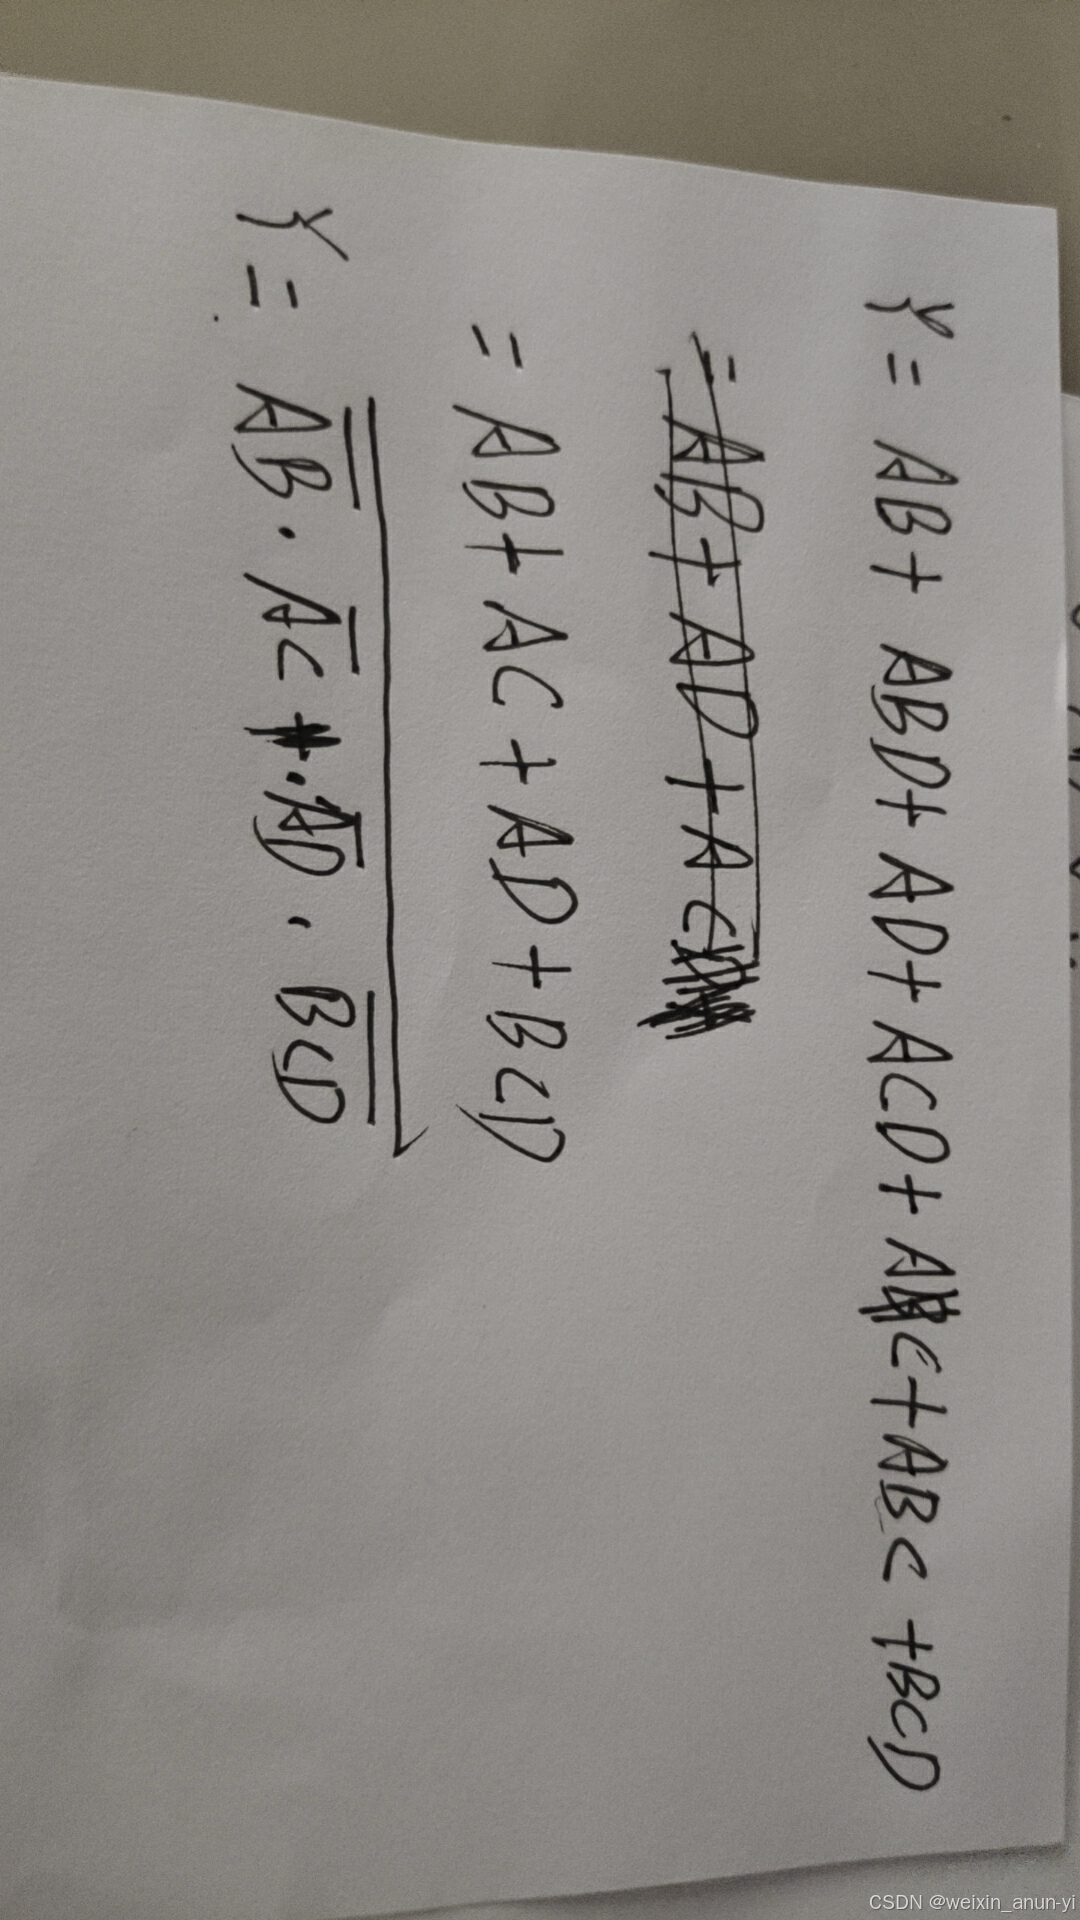 Y = AB + ABD + AD + ACD + AC + ABC + BCD
= AB + AD + AC
= AB + AC + AD + BCD
Y = \overline{\overline{AB} · \overline{AC} · \overline{AD} · \overline{BCD}}
CSDN @weixin_anun-yi